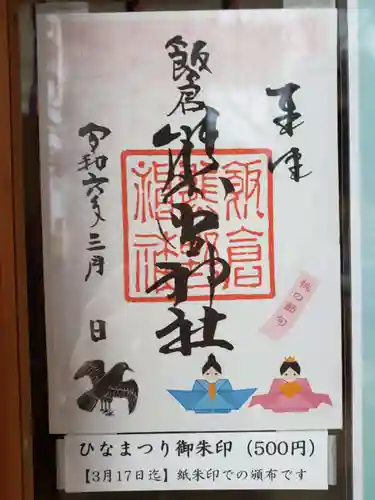 奉拝
飯倉
熊野神社
令和六年三月
日
飯倉
熊野
神社
桃の節句
ひなまつり御朱印(500円)
【3月17日迄】紙朱印での頒布です